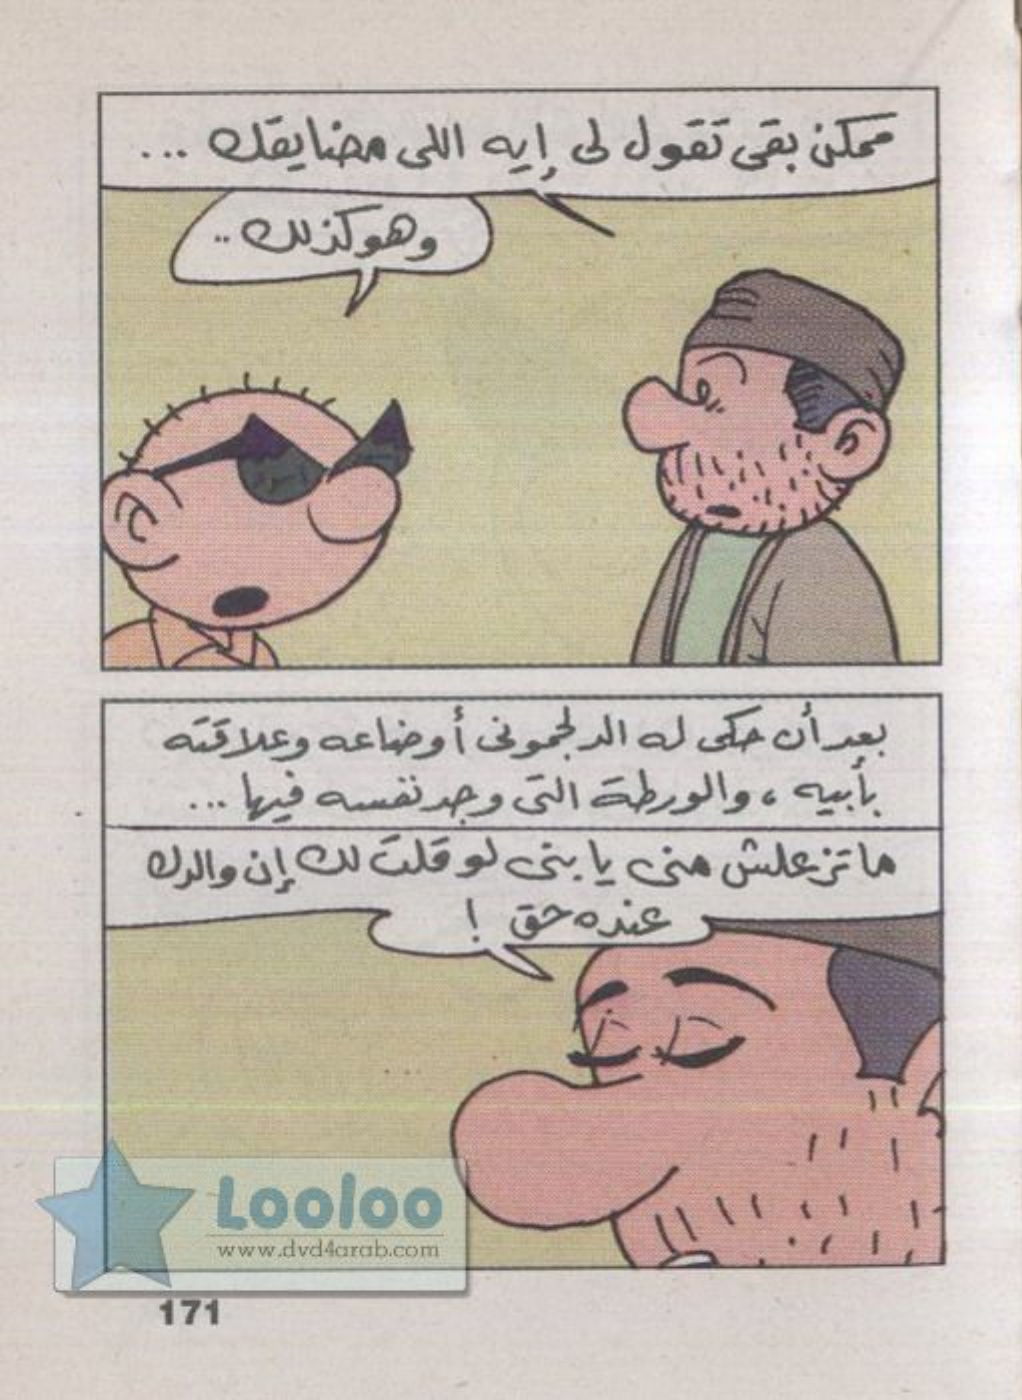 ممكن بقى تقول لى إيه اللى مضايقك ...
وهو كذلك ..
بعد أن حكى له الدلجمونى أوضاعه وعلاقته
بأبيه ، والورطة التى وجد نفسه فيها ...
ما تزعلش منى يا بنى لو قلت لك إن والدك
عنده حق !
Looloo
www.dvd4arab.com
171